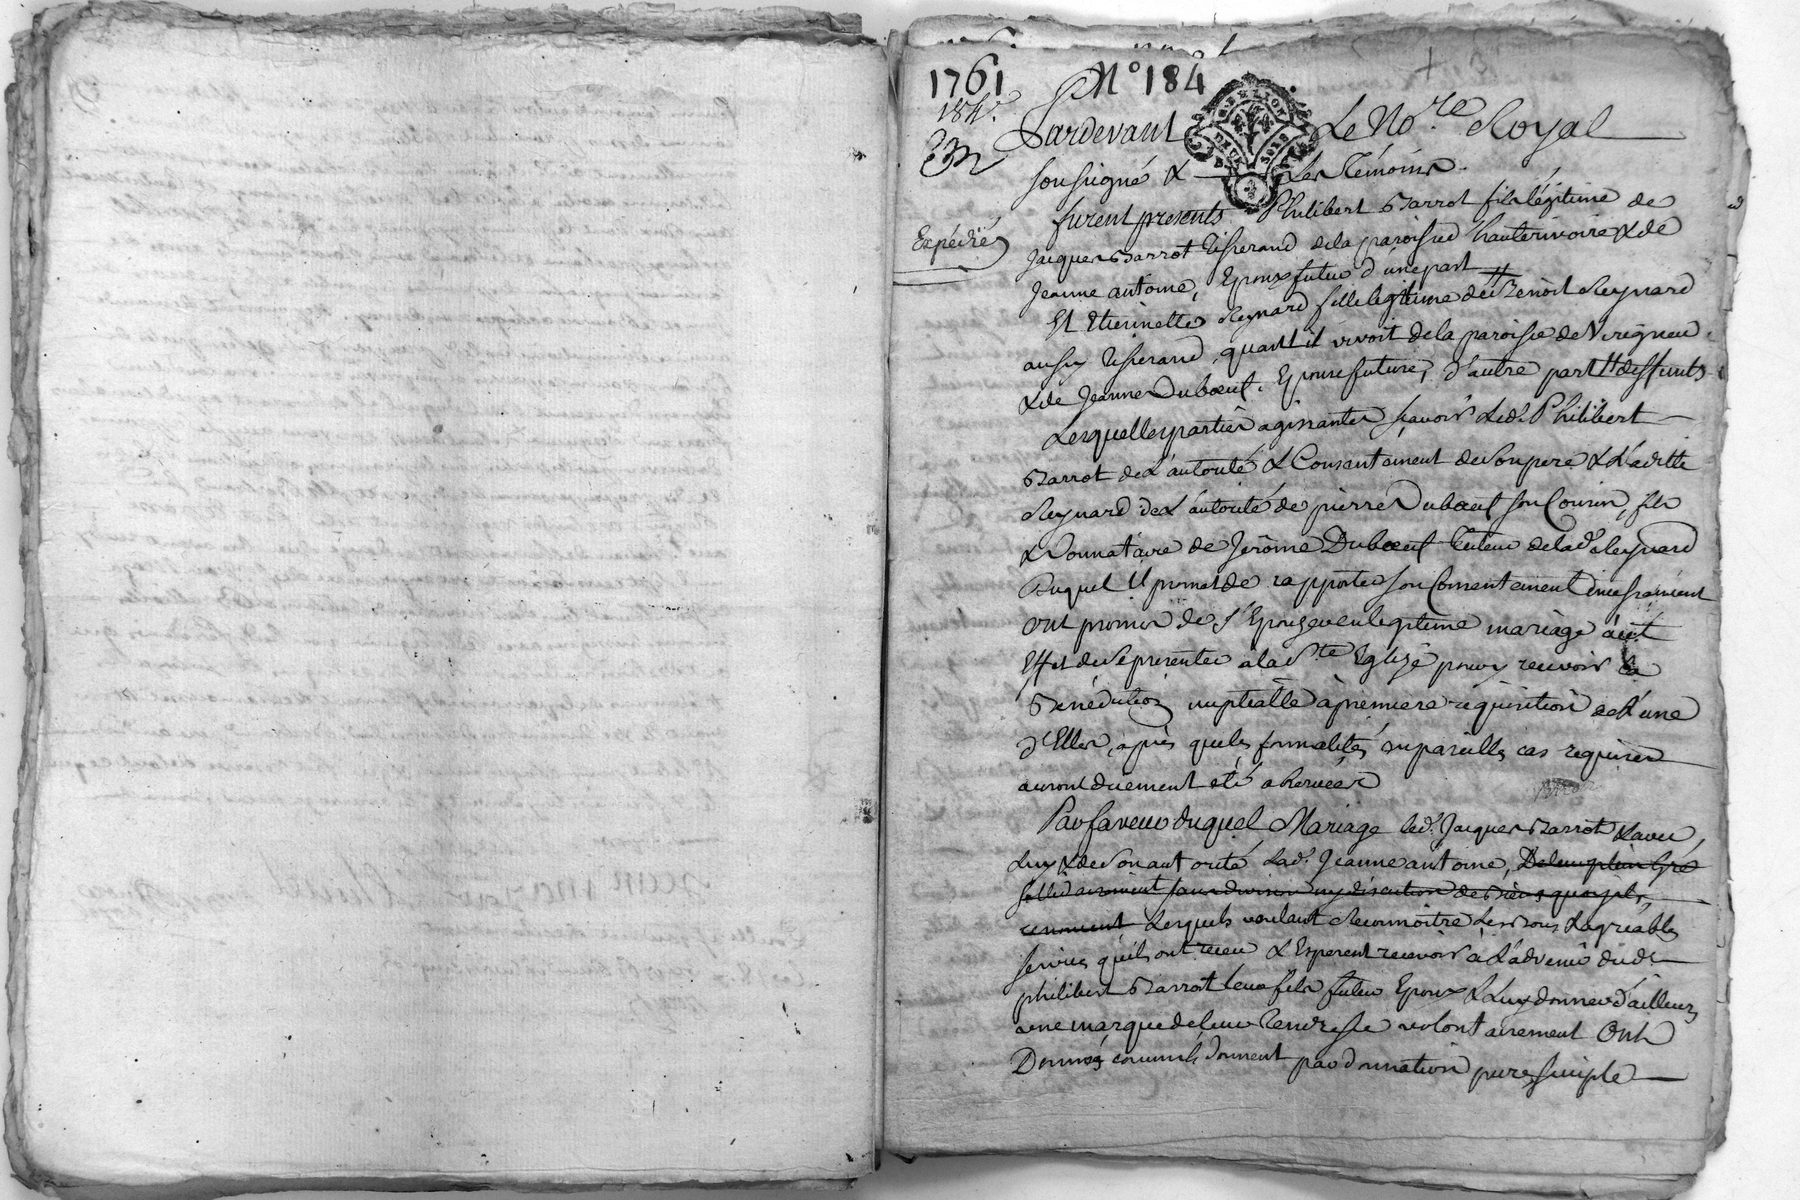 1761 N° 184
184.e
Pardevant Le No.re Royal
soussigné & Les Témoins
furent presents Philibert Barrot fils légitime de
Expédiée
Jacques Barrot tisserand de la paroisse d hauterivoire & de
Jeanne antoine, Epoux futur d'une part
Et Etiennette Reynard fille legitime de Benoit Reynard
aussy tisserand, quant il vivoit de la paroisse de Virigneu
& de Jeanne Duboeuf. Epouse future, d'autre part deffunts
Lesquelles parties agissantes sçavoir Led. Philibert
Barrot de L'autorité & Consentement de son pere & Laditte
Reynard de L'autorité de pierre Duboeuf son Cousin, fils
& Donnataire de Jerôme Duboeuf tuteur de lad.e Reynard
Duquel il promet de rapporter son Consentement incessament
ont promis de s'Epouzer en legitime mariage à cet
Effet de se presenter a la S.te Eglize pour y recevoir la
Bénédiction nuptialle à premiere réquisition de L'une
d'Elles, après que les formalités en pareilles cas requises
auront duement été observées
Par faveur duquel Mariage led. Jacques Barrot & avec
Luy & de son autorité Lad. Jeanne antoine, De leur plein Gré
sollidairement sans division ny discution de Biens a quoy ils
renoncent Lesquels voulant Reconnoitre Les Bons & agréables
services qu'ils ont receu & Esperent recevoir à L'advenir dud.
philibert Barrot leur fils futur Epoux & Luy donner d'ailleurs
une marque de leur Tendresse volontairement Ont
Donnés comme ils donnent par donnation pure, simple